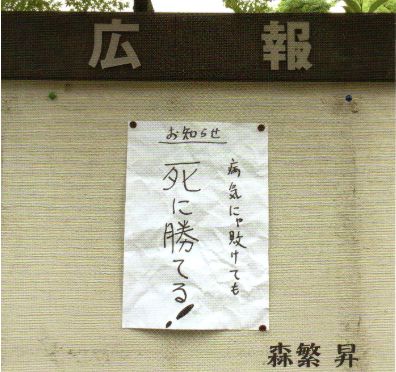 広報
お知らせ
病気にゃ敗けても
死に勝てる!
森繁 昇